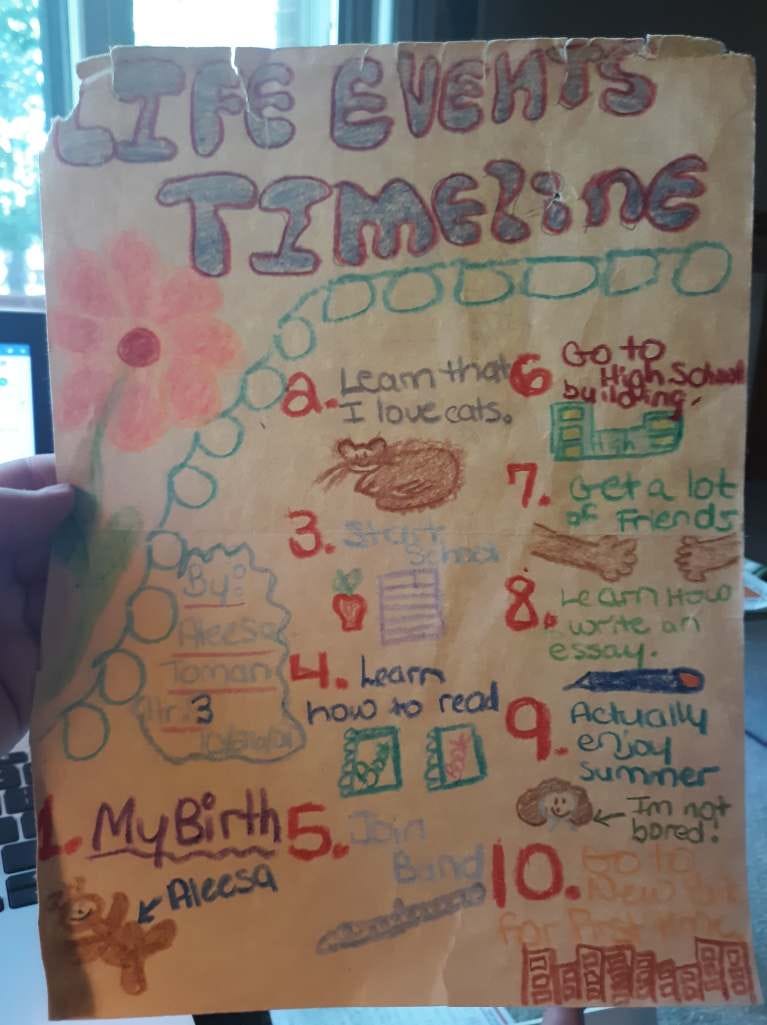 LIFE EVENTS
TIMELINE
By:
Aleesa
Toman
Hr. 3
1. My Birth
Aleesa
2. Learn that
I love cats.
3. Start
School
4. Learn
how to read
5. Join
Band
6 Go to
High School
building.
7. Get a lot
of Friends
8. Learn How
write an
essay.
9. Actually
enjoy
summer
I'm not
bored!
10. Go to
New
for First